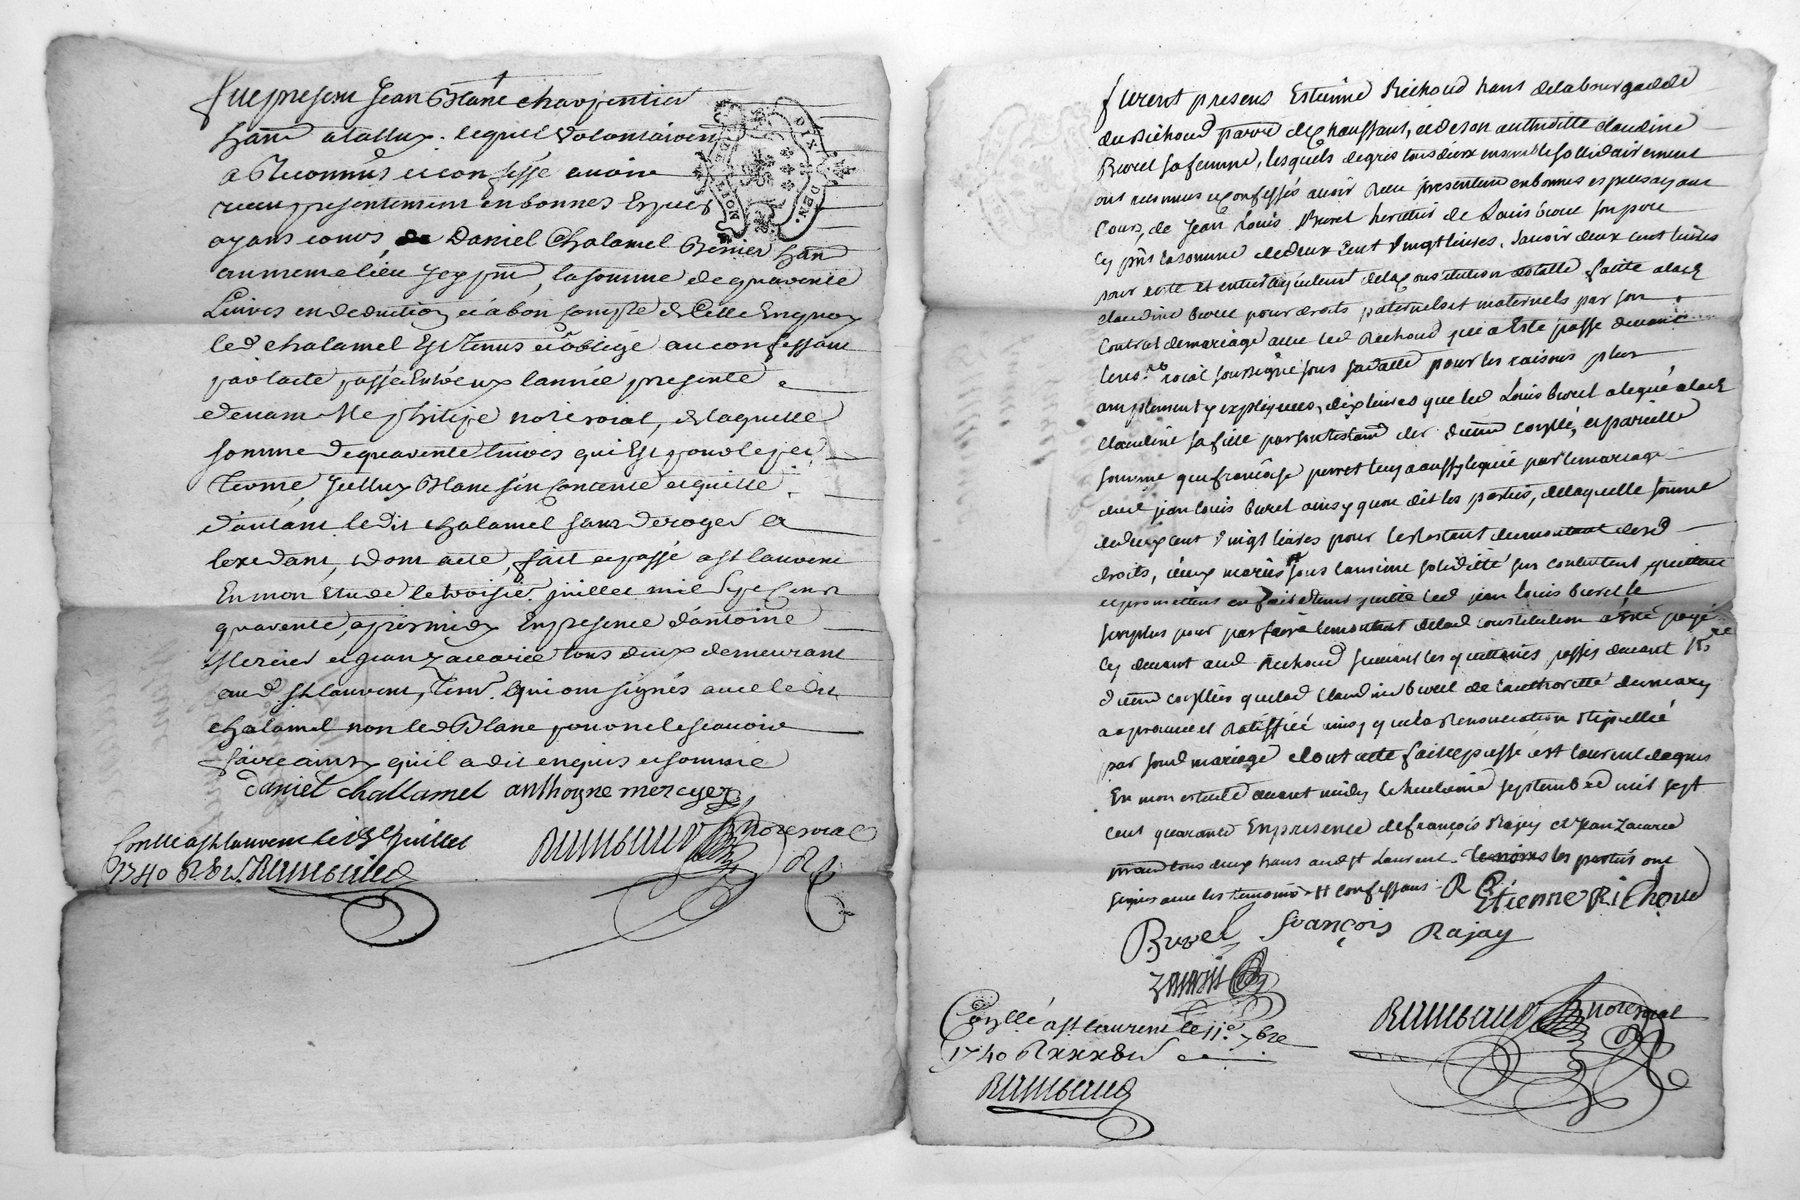 fut presen Jean Blanc charpentier
hant a tallux. lequel volontairem
a Reconnus et confessé auoir
receu presentement en bonnes Espeses
ayans cours de Daniel Chalamel
au meme lieu y etpnt, la somme de quarente
Liures en deduction et a bon compte de Celle En quoy
led chalamel Est tenus et oblige au confessant
par lacte passé Entreux lannée presente
deuant Me philipe notre roial, de laquelle
somme de quarente liures qui Est pour le per
terme, Jcelluy Blanc sen contente et quitte
d'autant ledit chalamel sans deroger a
lexedant, dont acte, fait et passé a st laurent
En mon Etude le troisie. juillet mil sept Cent
quarente, apres midy En presence d'antoine
Mercier et jean Zacarie tous deux demeurant
aud st laurent, temv. qui ont signés auec ledit
chalamel non led Blanc pour ne le scauoir
faire ainsy qu'il a dit enquis et sommé
daniel challamel anthoyne mercyer
Conlle a st laurent le 13e Juillet
1740 R Rambaud
Rambaud notre roial
MOY DE DIX DEN.
furent presens Estienne Richoud hant de la bourgade de
du Richoud parroe deChauffant, et de son authoritte claudine
Burel sa femme, lesquels de gres tous deux ensemble sollidairement
ont reconnus et confessés auoir Receu presentem en bonnes espesses ayant
Cours, de Jean Louis Burel heretier de Louis burel son pere
Cy pnt la somme de deux Cent Vingt liures, sauoir deux cent liures
pour reste et entier payement de la Constitution dotalle faitte a lad
claudine burel pour droits paternels et maternels par son
Contrat de mariage auec led Richoud que a Este passé deuant
le no.re roial soussigné sous sa datte pour les raisons plus
amplement y expliquees, dix liures que led Louis burel a legué a lad
claudine sa fille par son testam der dument conllé, et pareille
somme que francoise perret luy a aussy legué par le mariage
dud jean louis burel ainsy quon dit les parties, de laquelle somme
de deux cent vingt liures pour le restant du montant desd
droits, iceux mariés sous la meme solidité sen contentent quittent
et promettent en faire tenir quitte led jean louis burel le
surplus pour parfaire le montant de lad constitution a Eté payé
Cy deuant aud Richoud suiuant les quittances passés deuant Nre
dument conllées que lad Claudine burel de lauthoritté du mary
aaprouue et Ratiffiée ainsy que la Renonciation stipullée
par sond mariage dont acte fait et passé a st laurent du pape
En mon estude auant midy le huitieme septembre mil sept
cent quarante En presence de françois Rajay et Jean Zacarie
praticiens tous deux hant aud st Laurent. temoins les parties ont
signés auec les temoins et confessant R
Etienne Richoud
Burel françois Rajay
Zacarie
Conllé a st laurent le 11e 7bre
1740 R xxx
Rambaud
Rambaud notre roial